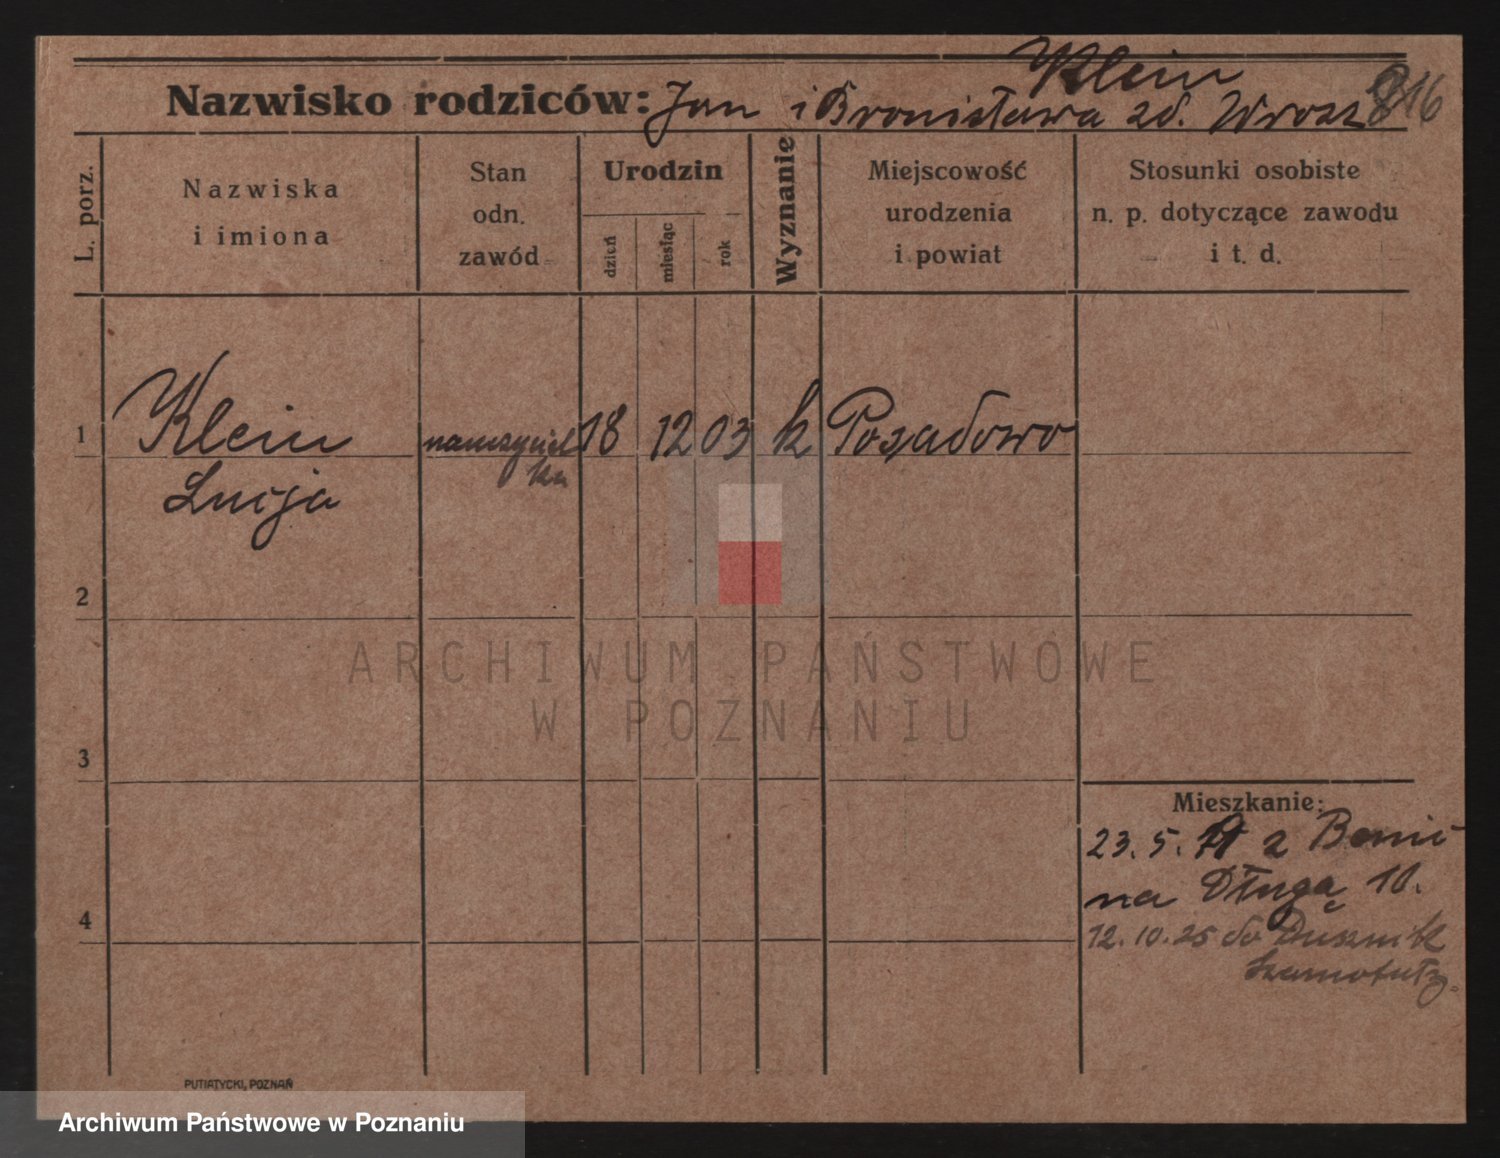 Klein
Nazwisko rodziców: Jan i Bronisława zd. Wrosz 816
L. porz.
Nazwiska
i imiona
Stan
odn.
zawód
Urodzin
dzień
miesiąc
rok
Wyznanie
Miejscowość
urodzenia
i powiat
Stosunki osobiste
n. p. dotyczące zawodu
i t. d.
1 Klein nauczyciel 18 12 03 k Posadowo
ka
Lucja
2
ARCHIWUM PAŃSTWOWE
W POZNANIU
3
Mieszkanie:
23. 5. z
na Długą 10.
4
12. 10. 25 do Dusznik
Szamotuły.
PUTIATYCKI, POZNAŃ
Archiwum Państwowe w Poznaniu